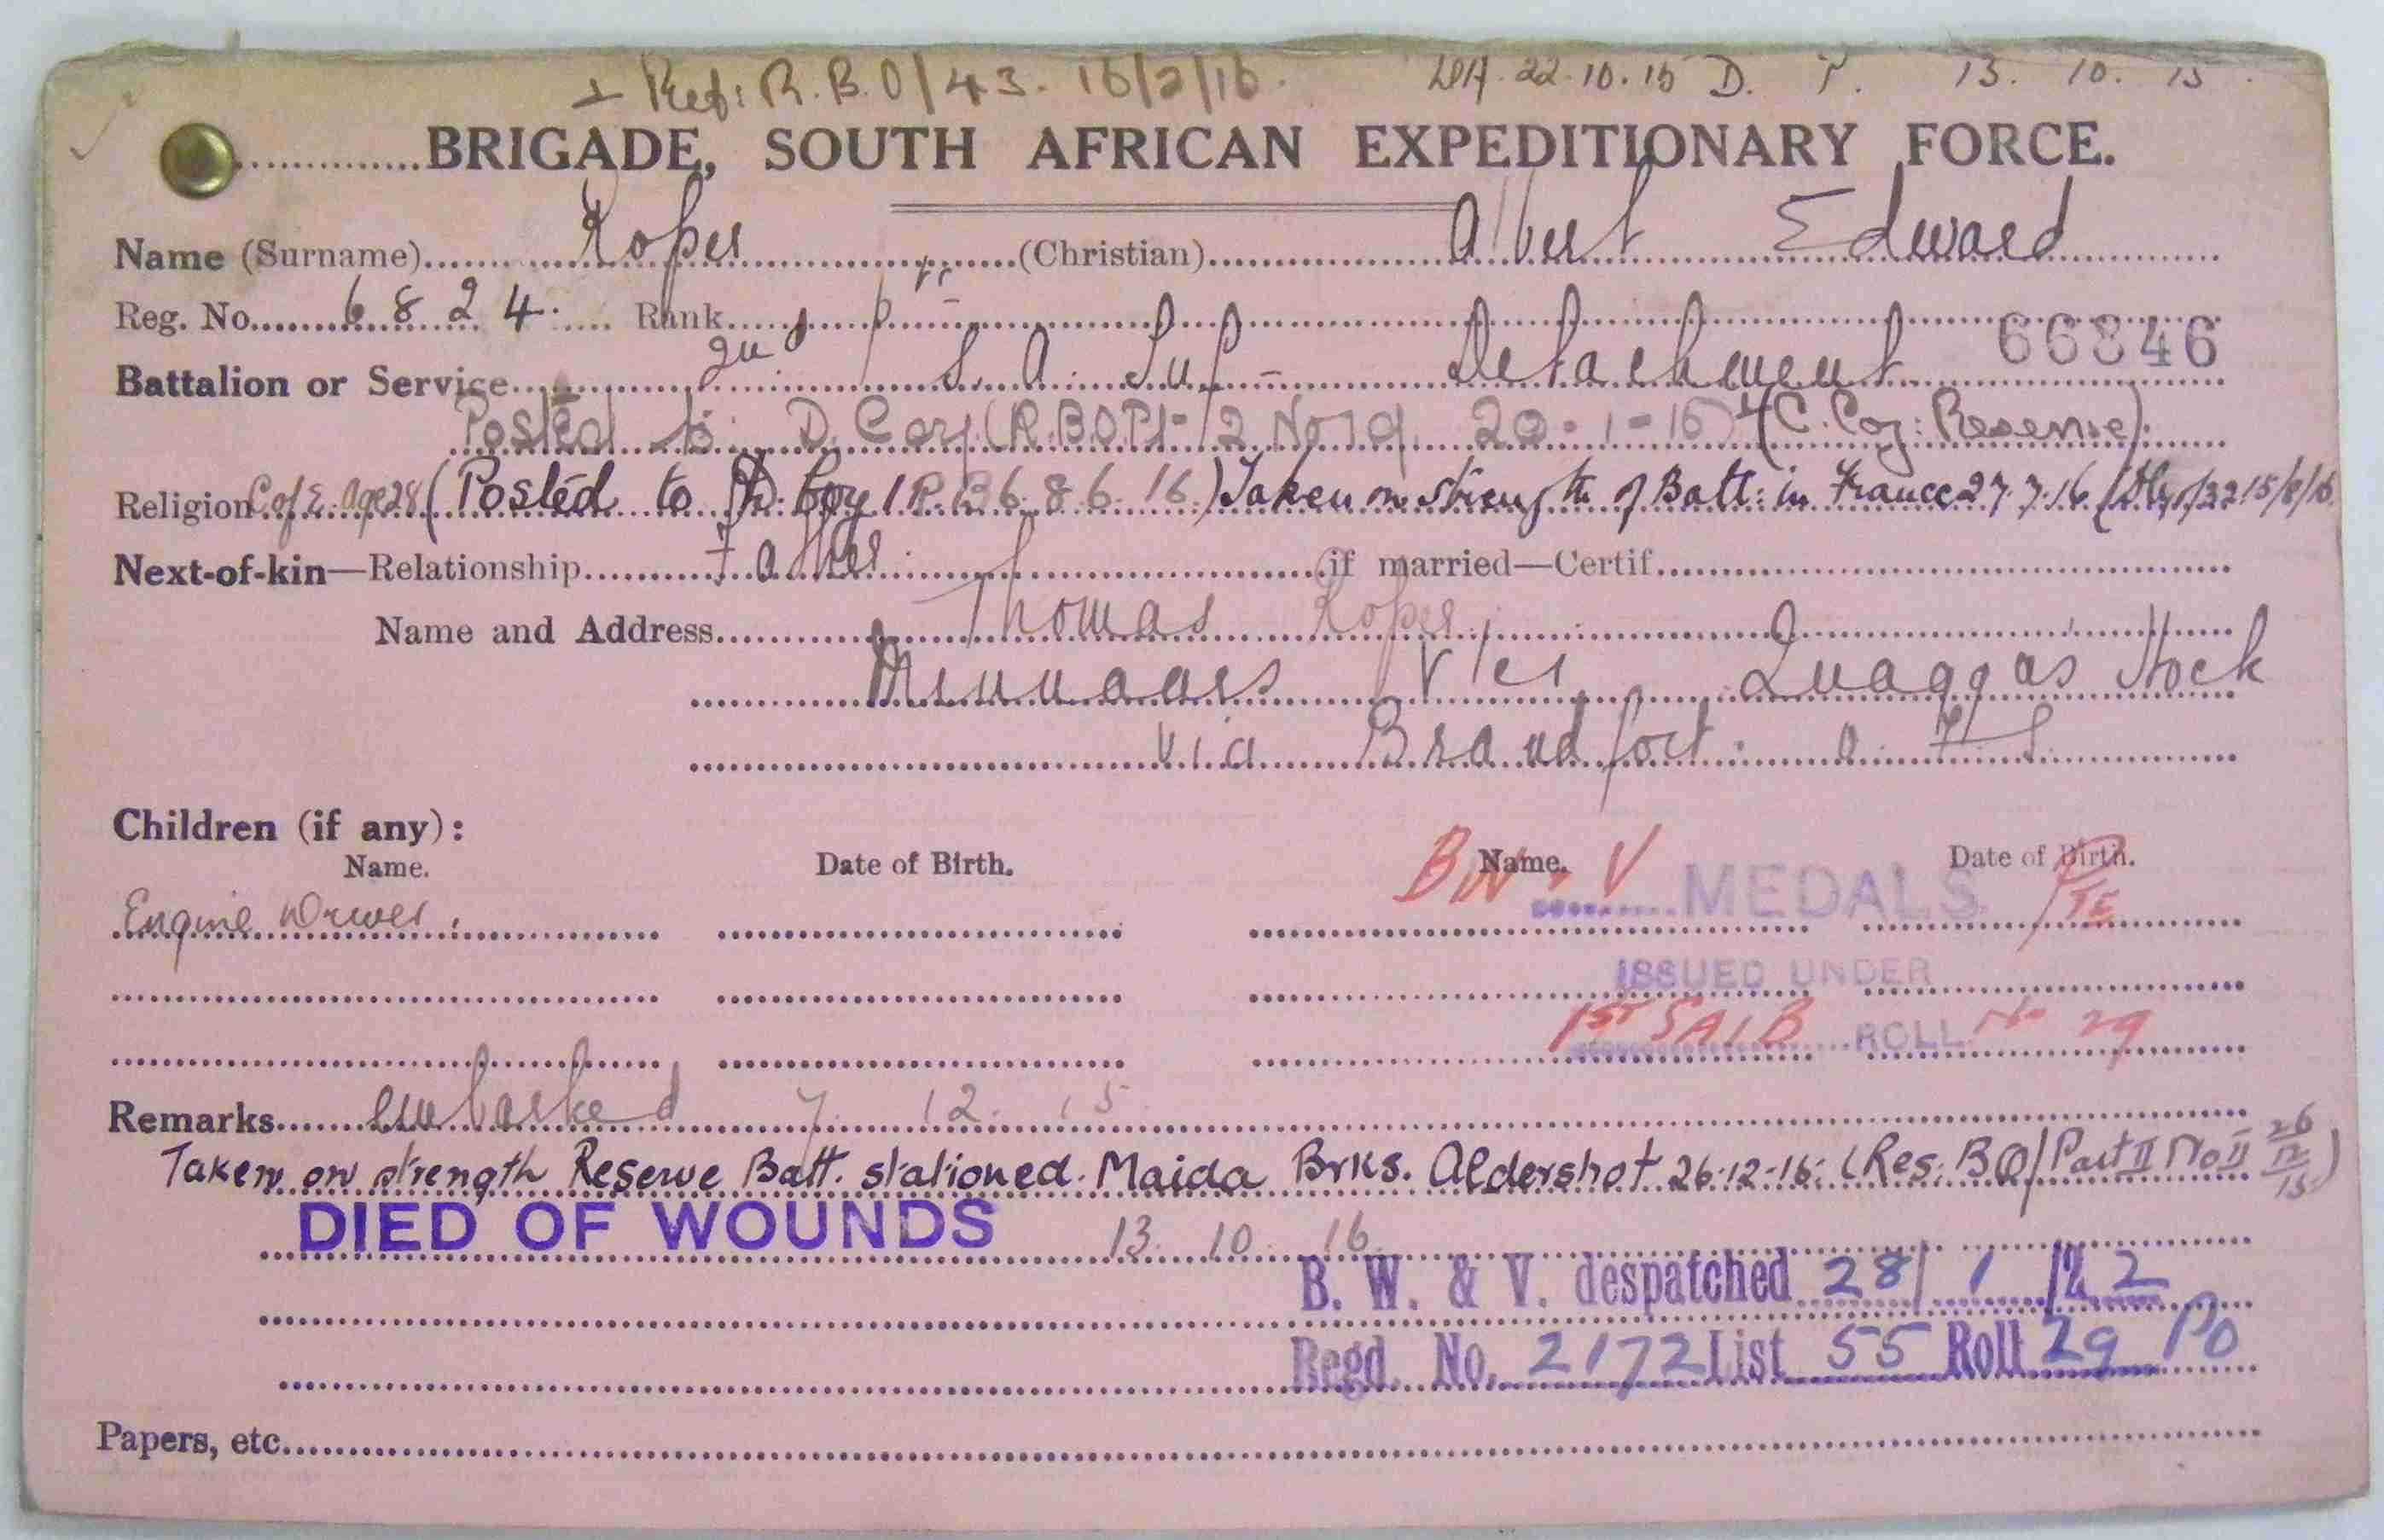 Ref: R.B.O/43. 16/2/16. 22.10.15 D. P. 13. 10. 15.
BRIGADE, SOUTH AFRICAN EXPEDITIONARY FORCE.
Name (Surname) Roper (Christian) Albert Edward
Reg. No. 6824. Rank
66846
Battalion or Service S. A. Inf- Detachment
Posted to D. Coy (R.B.O Pt- 2 No 19 20-1-16) (C. Coy: Reserve)
Religion C of E. Age 28 (Posted to D. Coy 8.6.16.) Taken on strength of Batt: in France 27.7.16 15/8/16
Next-of-kin—Relationship Father. if married—Certif.
Name and Address Thomas Roper.
Vlei, Quaggas Hoek
via Brandfort: O. F. S
Children (if any):
Name. Date of Birth. Name. Date of Birth.
BW & V MEDALS PTE
Engine Driver.
ISSUED UNDER
1ST SAIB ROLL No 29
Remarks Embarked 7. 12. 15
Taken on strength Reserve Batt. stationed. Maida Brks. Aldershot 26.12.15: (Res: BO/Part II No II 26/12/15)
DIED OF WOUNDS 13. 10. 16
B. W. & V. despatched 28/1/22
Regd. No. 2172 List 55 Roll 29 PO
Papers, etc.